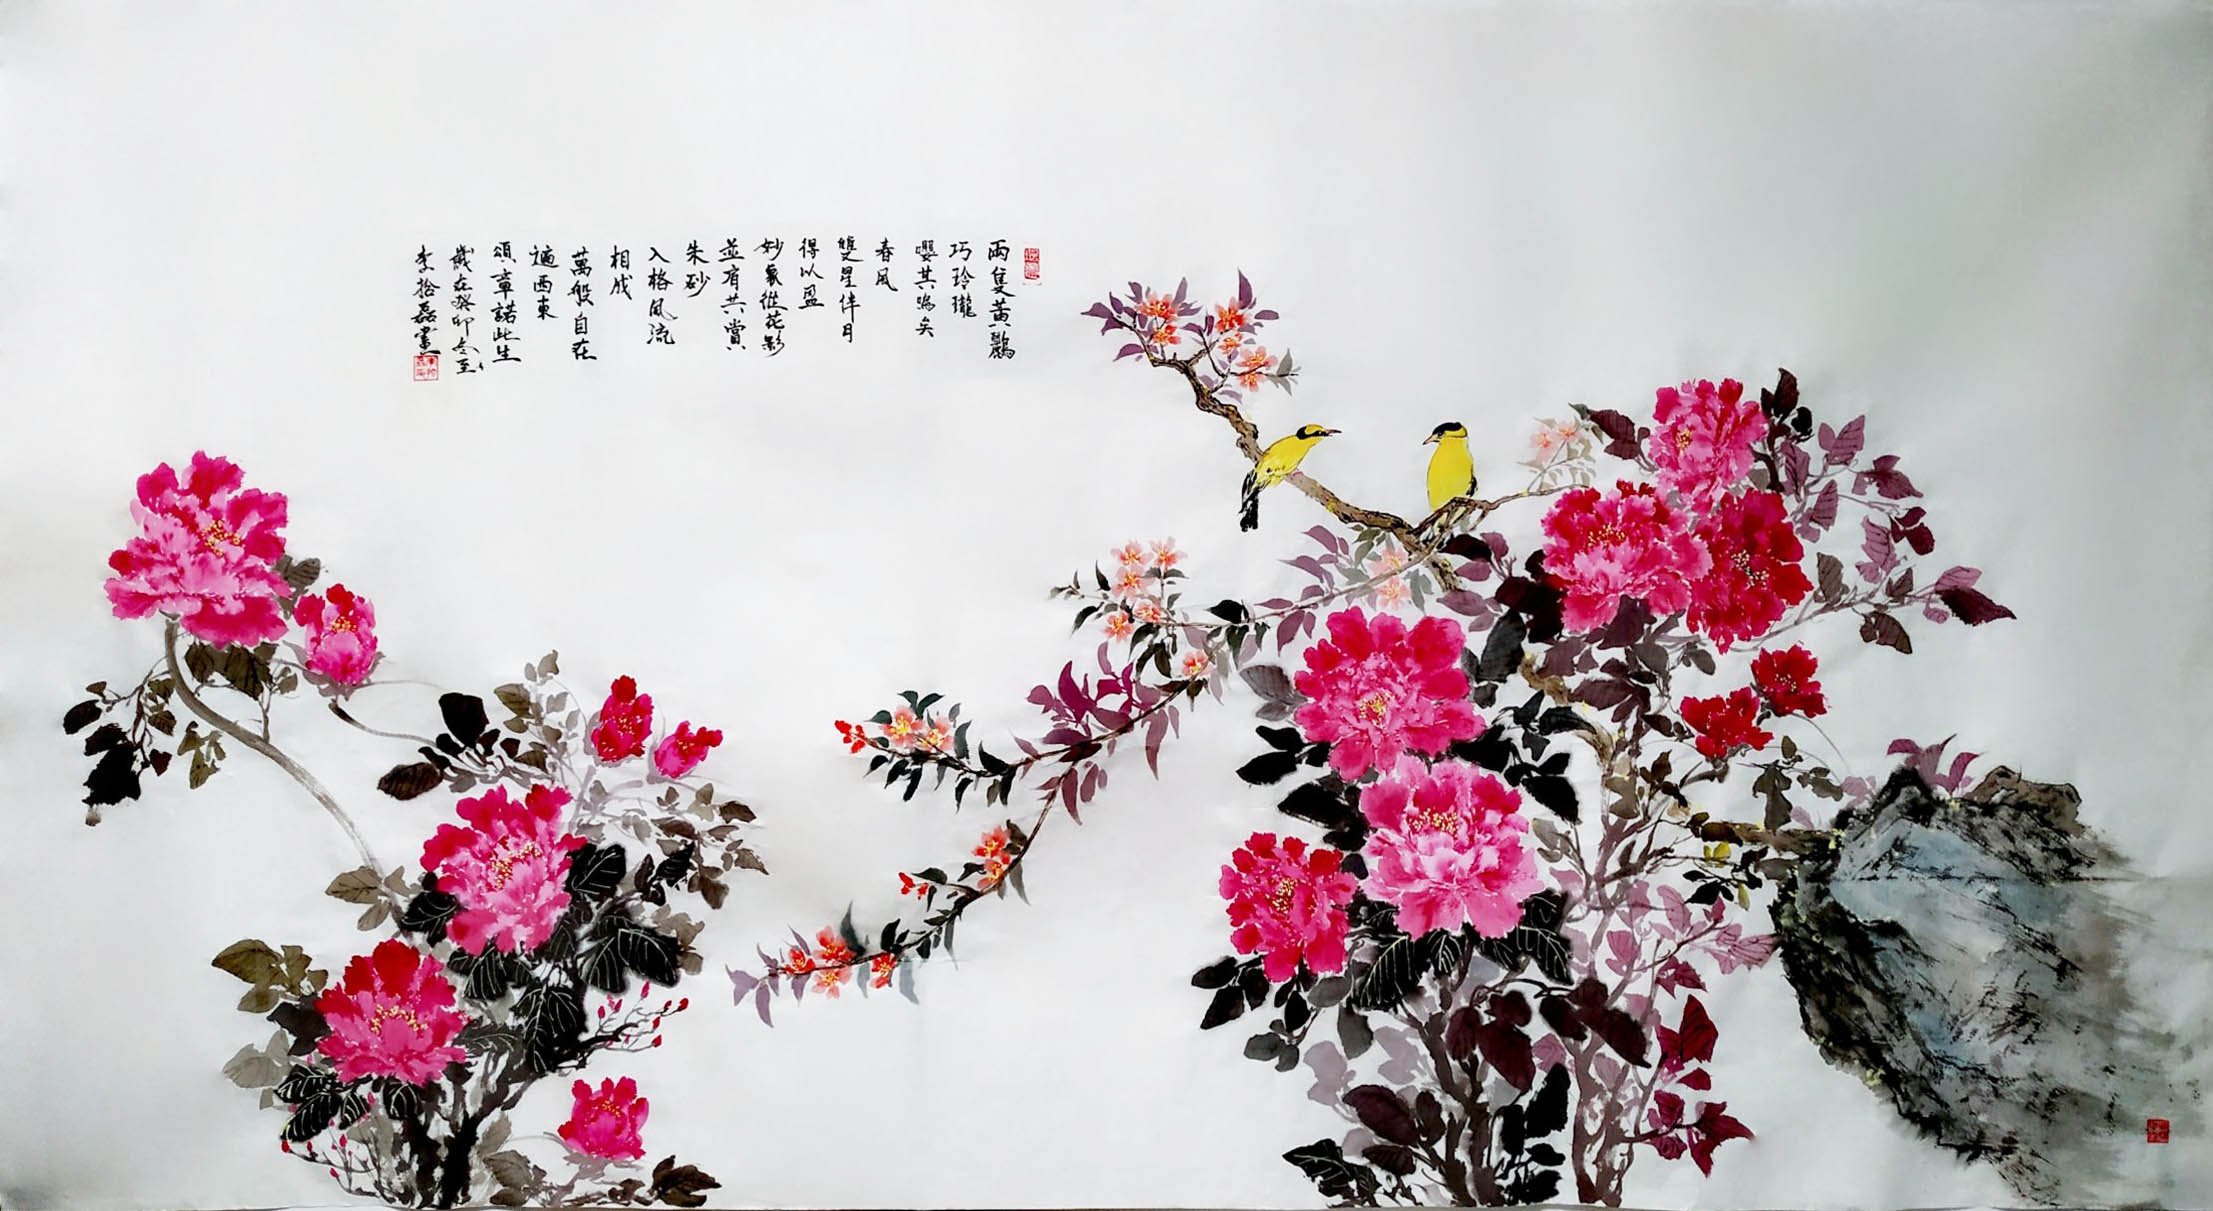 兩隻黃鸝
巧玲瓏
嚶其鳴矣
春風
雙星伴月
得以盈
妙象從花影
並肩共賞
朱砂
入格風流
相成
萬般自在
遍西東
頌章諾此生
歲在癸卯冬至
李拾磊畫